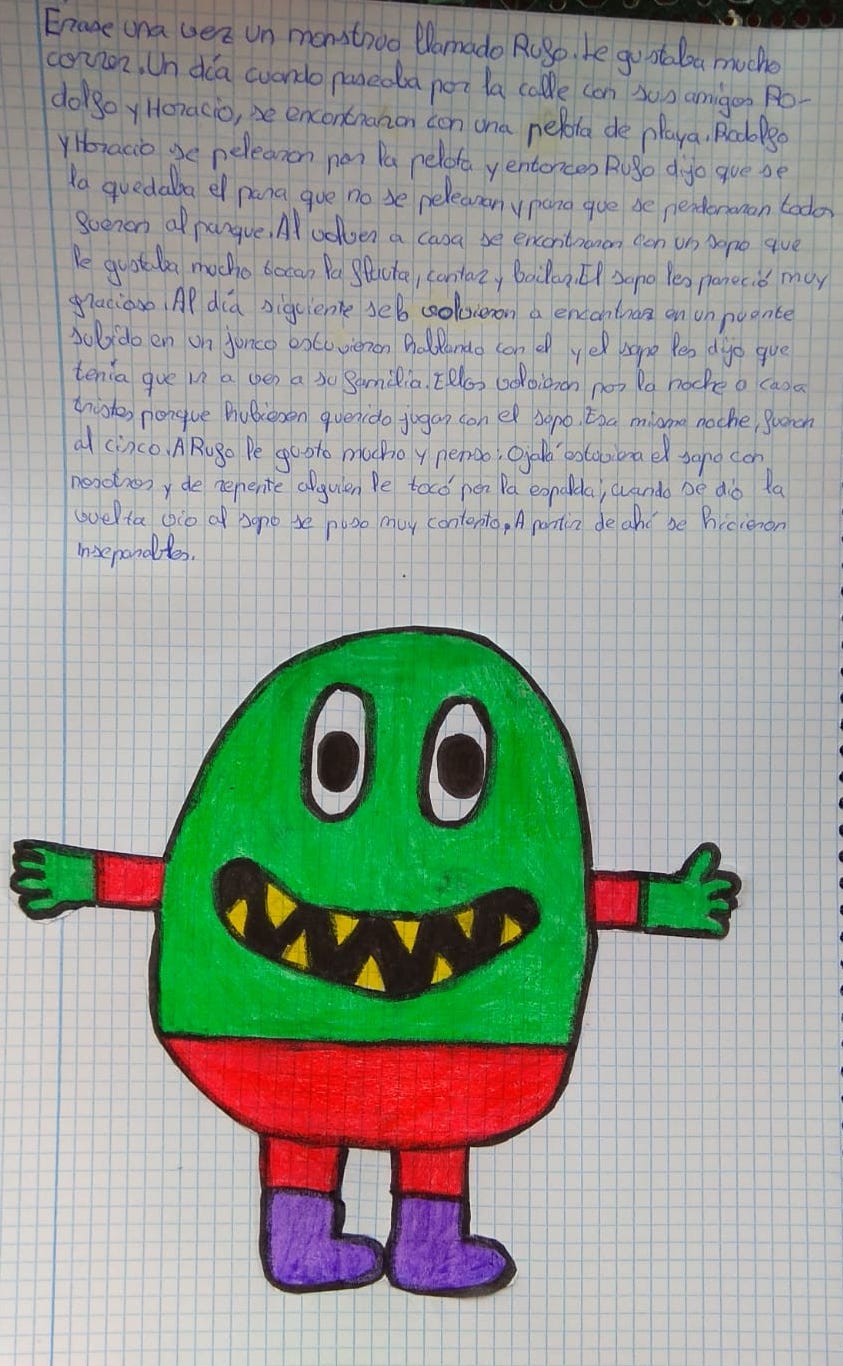 Erase una vez un monstruo llamado Rufo. Le gustaba mucho
correr. Un día cuando paseaba por la calle con sus amigos Ro-
dolfo y Horacio, se encontraron con una pelota de playa. Rodolfo
y Horacio se pelearon por la pelota y entonces Rufo dijo que se
la quedaba el para que no se pelearan y para que se perdonaran todos
fueron al parque. Al volver a casa se encontraron con un sapo que
le gustaba mucho tocar la flauta, cantar y bailar. El sapo les pareció muy
gracioso. Al día siguiente se volvieron a encontrar en un puente
subido en un junco estuvieron hablando con el y el sapo les dijo que
tenía que ir a ver a su familia. Ellos volvieron por la noche a casa
tristes porque hubiesen querido jugar con el sapo. Esa misma noche, fueron
al circo. A Rufo le gusto mucho y penso: Ojalá estuviera el sapo con
nosotros y de repente alguien le tocó por la espalda, cuando se dio la
vuelta vio al sapo se puso muy contento. A partir de ahí se hicieron
inseparables.